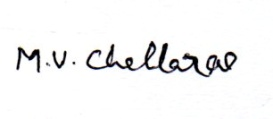 M.V. Chellarao